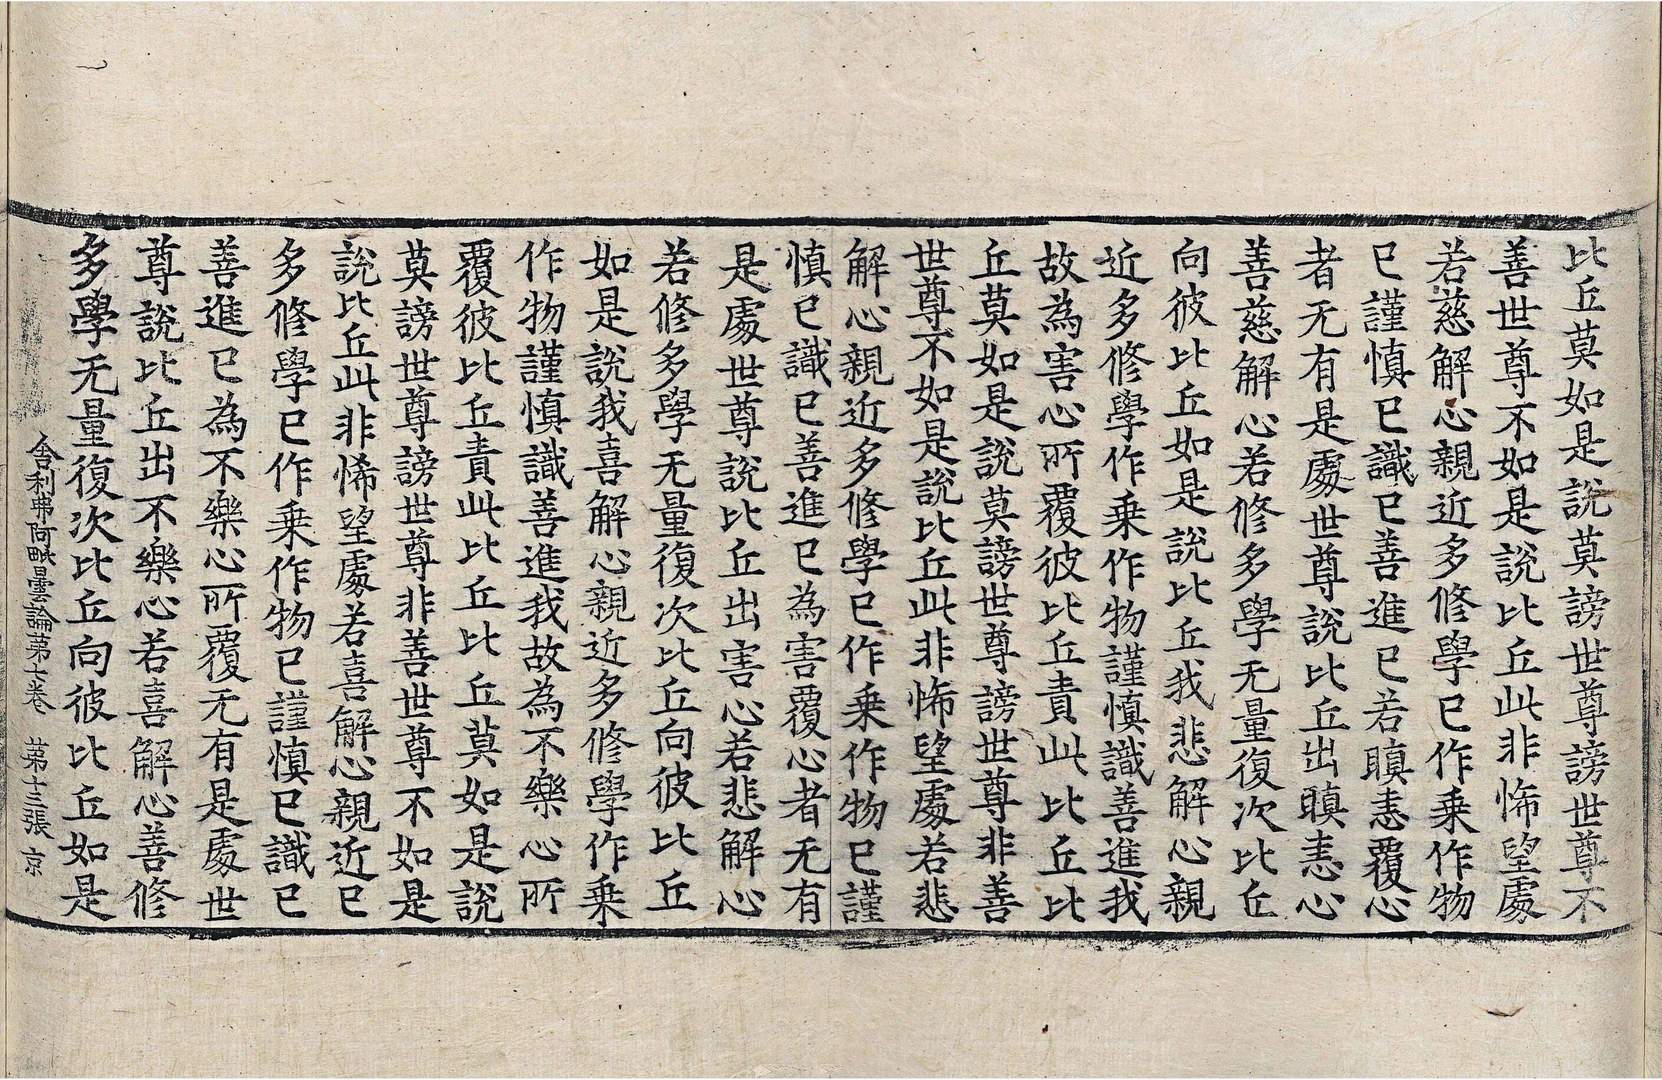 比丘莫如是說莫謗世尊謗世尊不
善世尊不如是說比丘此非悕望處
若慈解心親近多修學已作乗作物
已謹慎已識已善進已若瞋恚覆心
者无有是處世尊說比丘出瞋恚心
善慈解心若修多學无量復次比丘
向彼比丘如是說比丘我悲解心親
近多修學作乗作物謹慎識善進我
故為害心所覆彼比丘責此比丘比
丘莫如是說莫謗世尊謗世尊非善
世尊不如是說比丘此非悕望處若悲
解心親近多修學已作乗作物已謹
慎已識已善進已為害覆心者无有
是處世尊說比丘出害心若悲解心
若修多學无量復次比丘向彼比丘
如是說我喜解心親近多修學作乗
作物謹慎識善進我故為不樂心所
覆彼比丘責此比丘比丘莫如是說
莫謗世尊謗世尊非善世尊不如是
說比丘此非悕望處若喜解心親近已
多修學已作乗作物已謹慎已識已
善進已為不樂心所覆无有是處世
尊說比丘出不樂心若喜解心善修
多學无量復次比丘向彼比丘如是
舍利弗阿毗曇論苐七卷 苐十三張 京